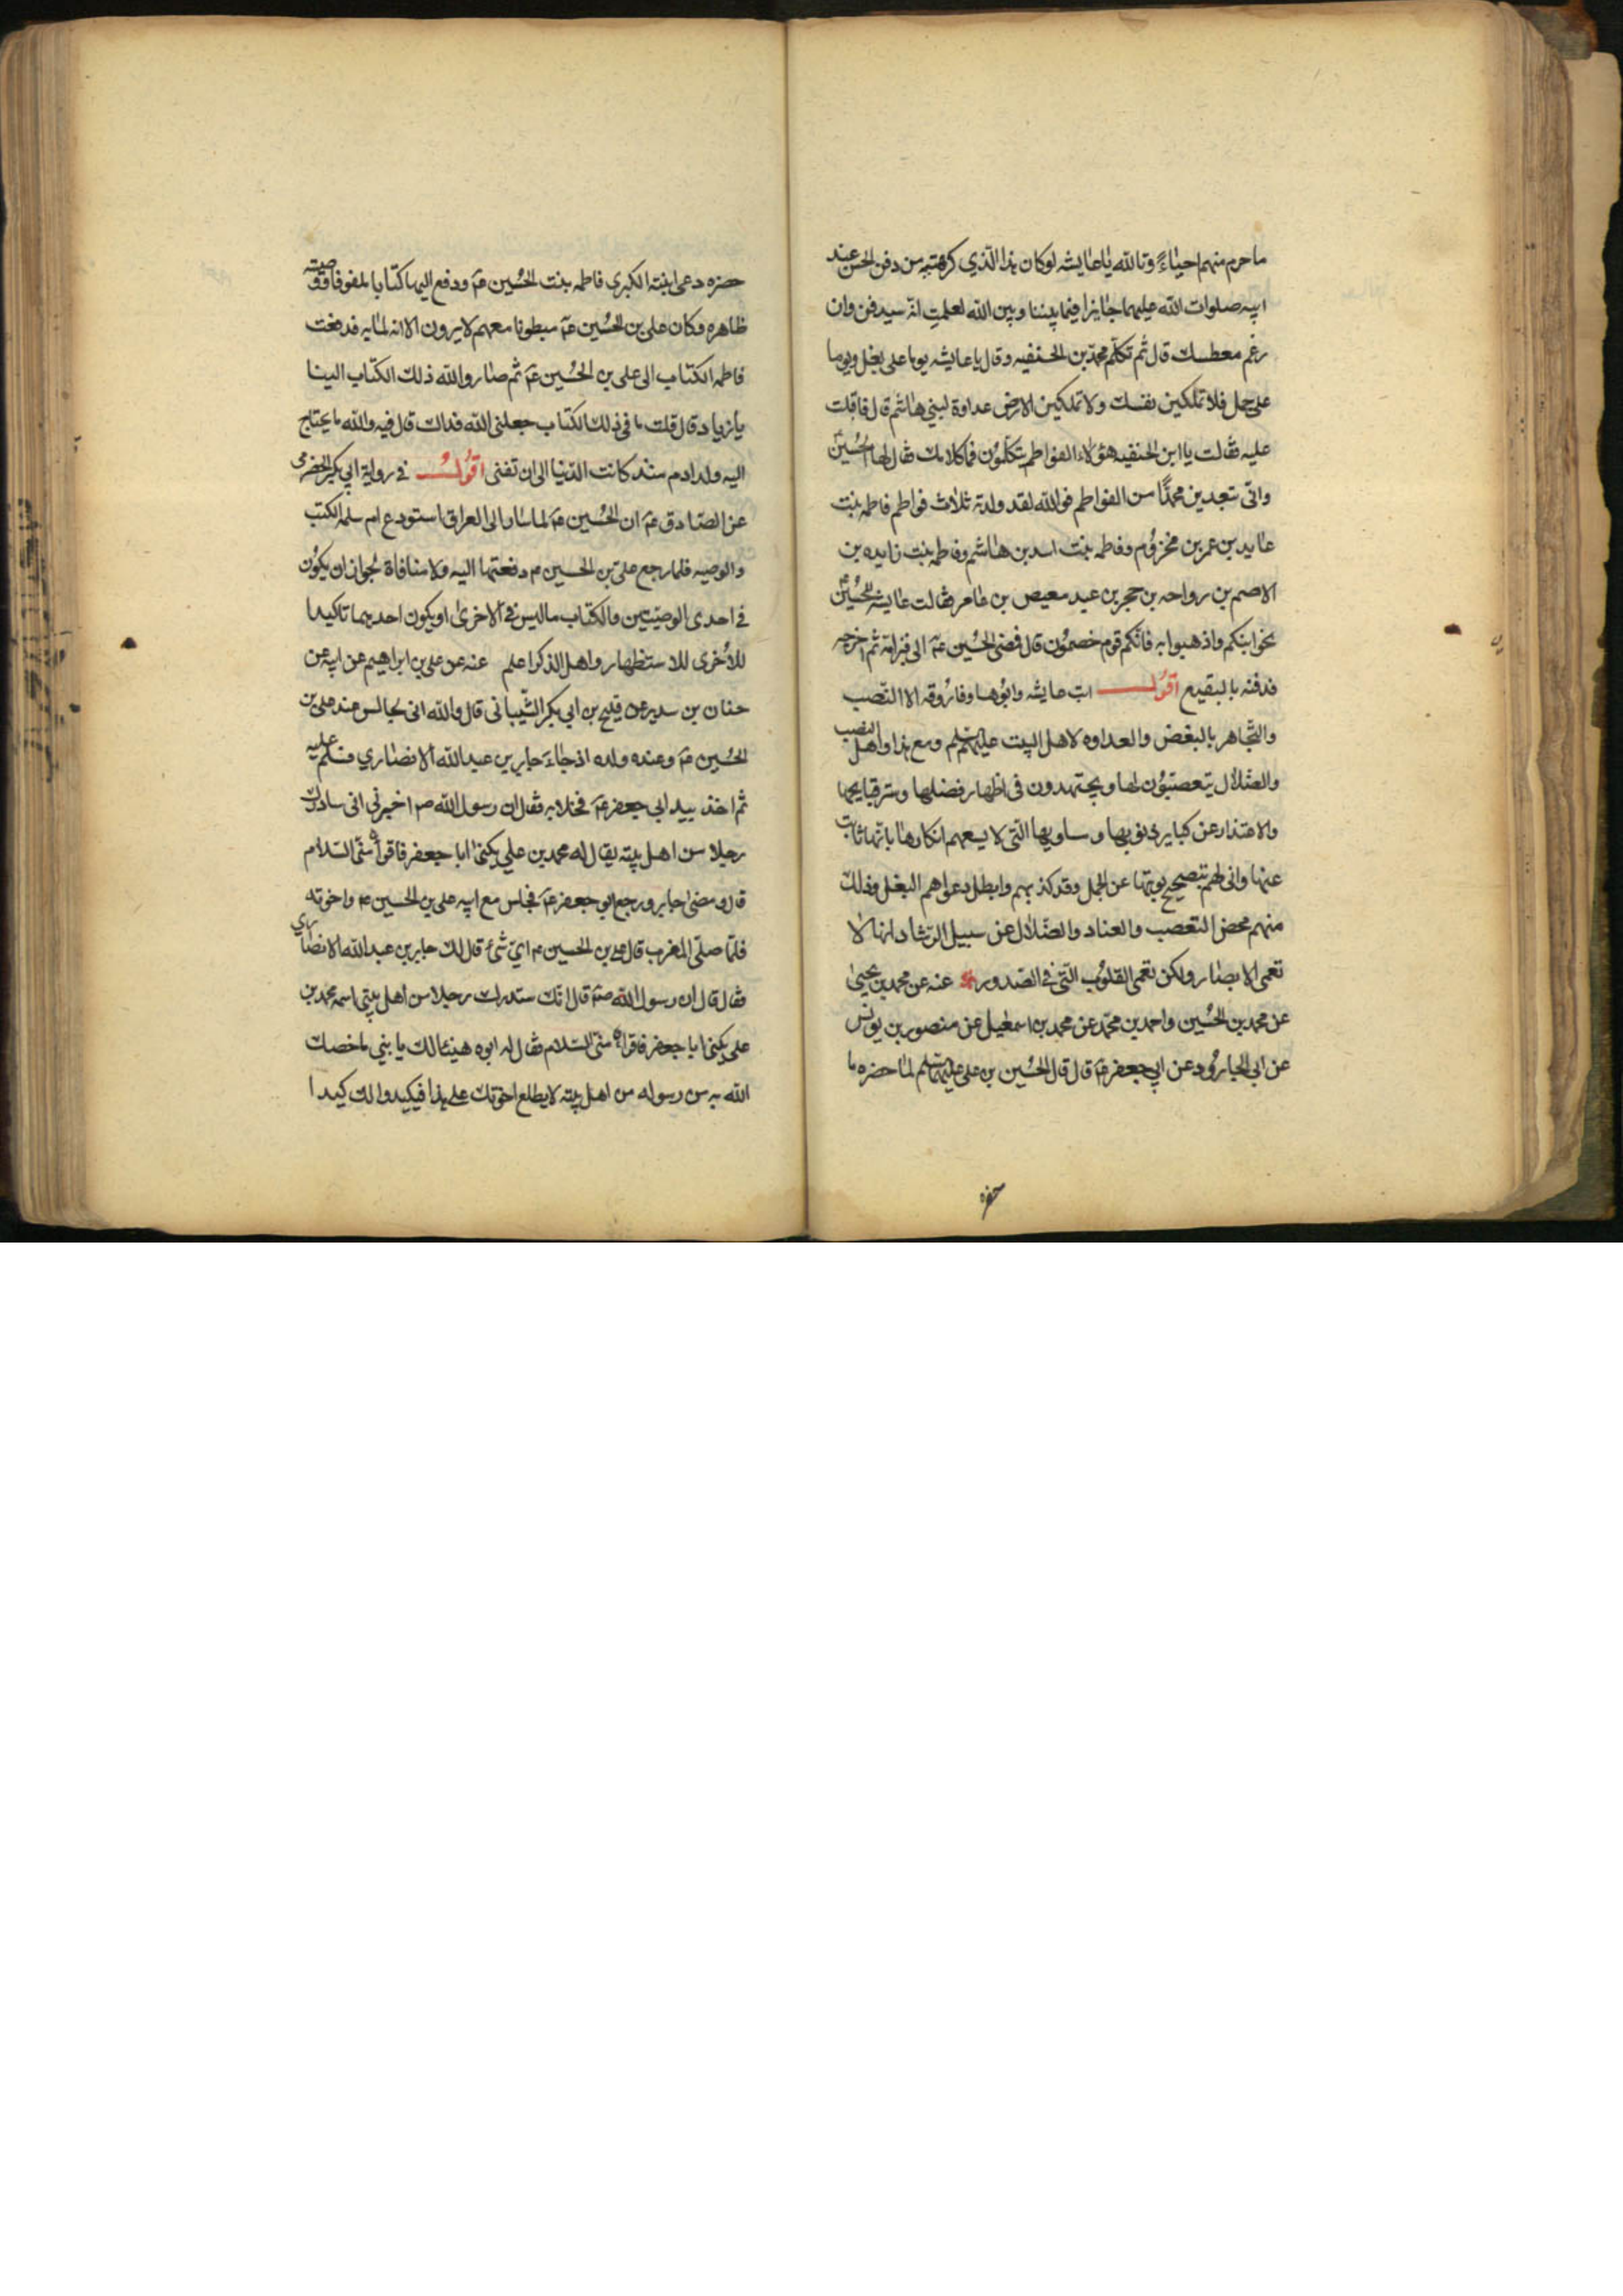 ما حرم منهم احياءً وتالله يا عايشه لو كان هذا الذي كرهتيه من دفن الحسن عند
ابيه صلوات الله عليهما جايزا فيما بيننا وبين الله لعلمتِ انه سيدفن وان
رغم معطسك قال ثم تكلّم محمد بن الحنفيه وقال يا عايشه يوما على بغل ويوما
على جمل فلا تملكين نفسك ولا تملكين الارض عداوة لبني هاشم قال فاقبلت
عليه فقالت يا ابن الحنفيه هؤلاء الفواطم يتكلّمون فما كلامك فقال لها الحُسين ع
وانّى تبعدين محمدًا من الفواطم فوالله لقد ولدته ثلاث فواطم فاطمه بنت
عايد بن عمر بن مخزوُم وفاطمه بنت اسد بن هاشم وفاطمه بنت زايده بن
الاصم بن رواحه بن حجر بن عبد معيص بن عامر فقالت عايشه للحُسين ع
نحوا ابنكم واذهبوا به فانّكم قوم خصمُون قال فمضى الحُسين عم الى قبر امّه ثم اخرجه
فدفنه بالبقيع اقوُل ابت عايشه وابوُها وفارُوقه الا النّصب
والتّجاهر بالبغض والعداوه لاهل البيت عليهم السّلم ومع هذا واهل النصب
والضّلال يتعصّبُون لها ويجتهدون في اظهار فضلها وستر قبايحها
والاعتذار عن كباير ذنوبها ومساويها التّي لا يسعهم انكارها بانّها تابت
عنها وانى لهم بتصحيح توبتها عن الجمل وقد كذبهم وابطل دعواهم البغل وذلك
منهم محض التعصب والعناد والضّلال عن سبيل الرّشاد انها لا
تعمى الابصار ولكن تعمى القلوُب التّي في الصّدور عنه عن محمد بن يحيىٰ
عن محمد بن الحُسين واحمد بن محمّد عن محمد بن اسمعيل عن منصور بن يونس
عن ابي الجارُود عن ابي جعفر عم قال قال الحُسين بن علي عليهما السّلم لمّا حضره ما
حضره
حضره دعى ابنته الكبرى فاطمه بنت الحُسين عم ودفع اليها كتابا ملفوفا ووصيّته
ظاهره وكان علي بن الحُسين عم مبطونا معهم لا يرون الا انه لما به فدفعت
فاطمه الكتاب الى علي بن الحُسين عم ثم صار والله ذلك الكتاب الينا
يا زياد قال قلت ما في ذلك الكتاب جعلني الله فداك قال فيه والله ما يحتاج
اليه ولد ادم منذ كانت الدّنيا الى ان تفنى اقوُلُ في رواية ابي بكر الحضرمي
عن الصّادق عم ان الحُسين عم لما سار الى العراق استودع ام سلمه الكتب
والوصيه فلما رجع علي بن الحسين م دفعتها اليه ولا منافاة لجواز ان يكوُن
في احدى الوصيّتين والكتاب ما ليس في الاخرىٰ او يكون احديهما تاكيدا
للأخرى للاستظهار واهل الذكر اعلم عنه عن علي بن ابراهيم عن ابيه عن
حنان بن سدير عن فليح بن ابي بكر الشّيباني قال والله اني لجالس عند علي بن
الحُسين عم وعنده ولده اذ جاءَ جابر بن عبد الله الانصاري فسلّم عليه
ثم اخذ بيد ابي جعفر عم فخلا به فقال ان رسول الله صم اخبرني اني سادرك
رجلا من اهل بيته يقال له محمد بن علي يكنّىٰ ابا جعفر فاقرأه منّي السّلام
قال ومضى جابر ورجع ابو جعفر عم فجلس مع ابيه علي بن الحسين م واخوته
فلمّا صلّى المغرب قال علي بن الحسين م ايّ شيءٍ قال لك جابر بن عبد الله الانصاري
فقال قال ان رسول الله صم قال انّك ستدرك رجلا من اهل بيتي اسمه محمد بن
علي يكنىٰ ابا جعفر فاقرأه منّي السّلام فقال له ابوه هنيئا لك يا بني ما خصك
الله به من رسوله من اهل بيته لا يطلع اخوتك على هذا فيكيدوا لك كيدا